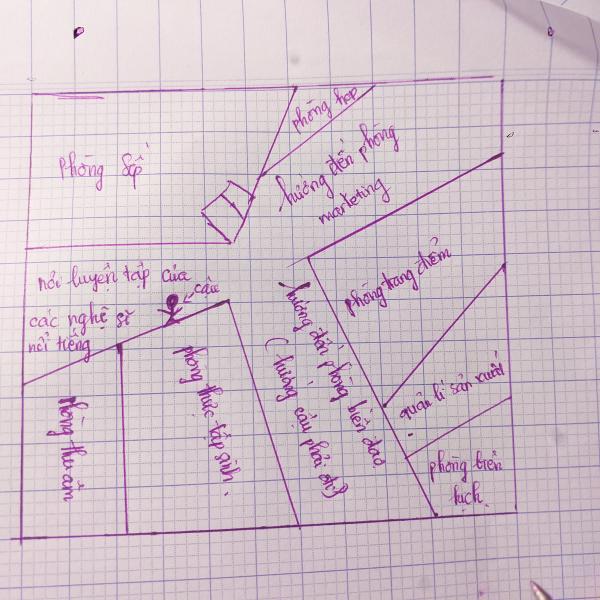 phòng họp
Phòng Sếp
hướng đến phòng
marketing
nơi luyện tập của
cậu
các nghệ sĩ
nổi tiếng
phòng trang điểm
hướng đến phòng biên đạo
( hướng cậu phải đi)
phòng thực tập sinh.
phòng thu âm
quản lí sản xuất
phòng biên
kịch